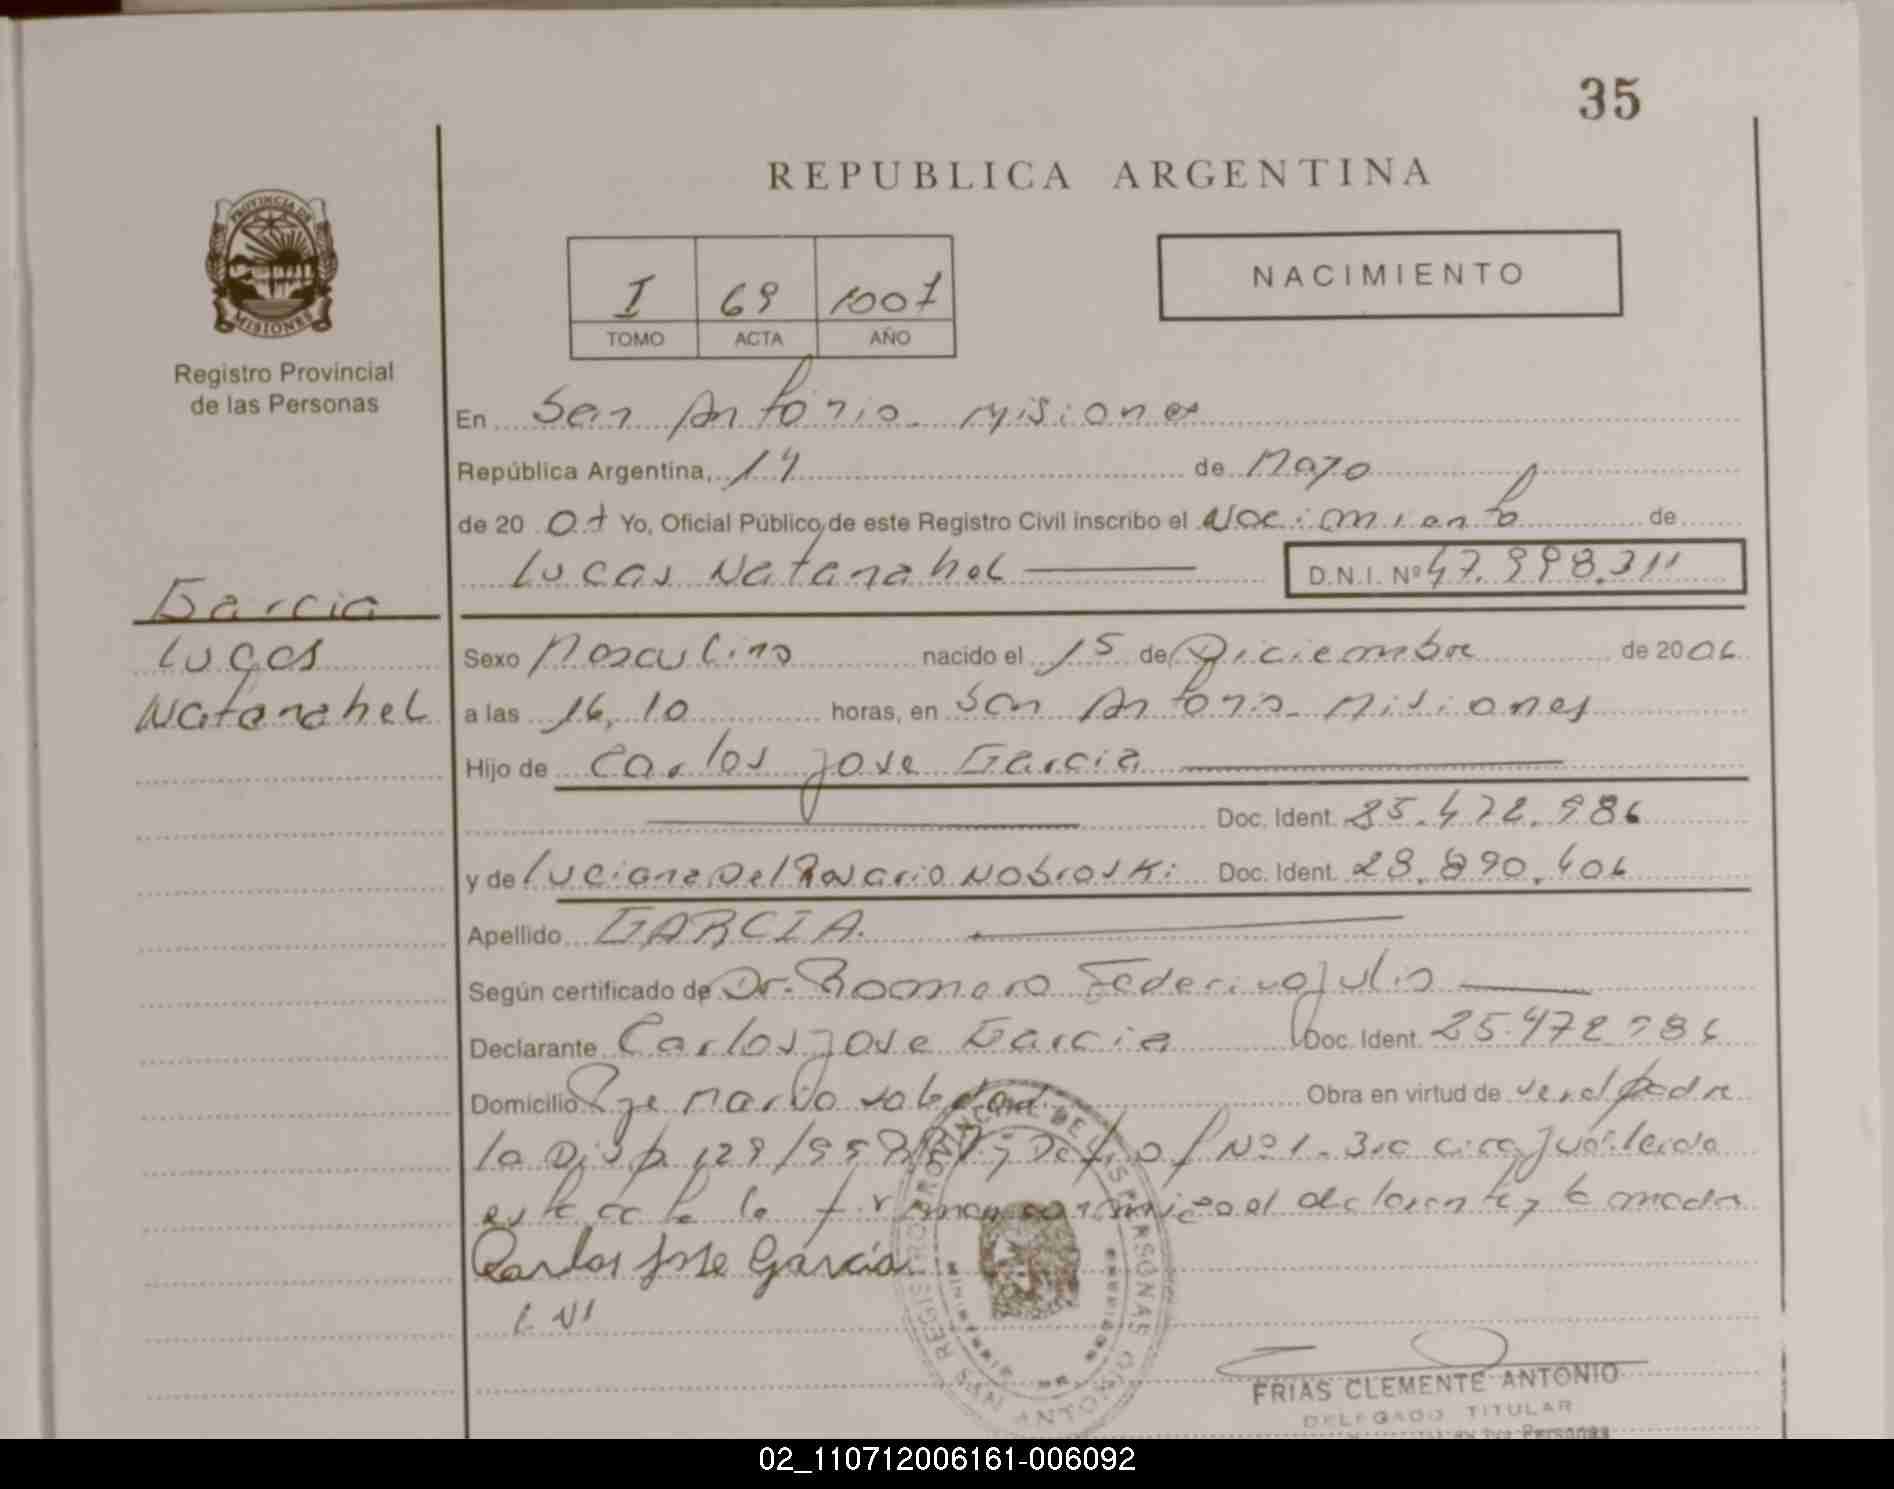 35
REPUBLICA ARGENTINA
PROVINCIA DE
MISIONES
Registro Provincial
de las Personas
I 69 1007
TOMO ACTA AÑO
NACIMIENTO
En San Antonio - Misiones
República Argentina, 14 de Mayo
de 20 07 Yo, Oficial Público de este Registro Civil inscribo el Nacimiento de
Lucas Natanahel D.N.I. Nº 47.998.311
Garcia
Lucas
Natanahel
Sexo Masculino nacido el 15 de Diciembre de 2006
a las 16,10 horas, en San Antonio - Misiones
Hijo de Carlos Jose Garcia
Doc. Ident. 25.472.986
y de Luciana Del Rosario Nobroski Doc. Ident. 28.890.406
Apellido GARCIA.
Según certificado de Dr. Romero Federico Julio
Declarante Carlos Jose Garcia Doc. Ident. 25.472.986
Domicilio Pje Maria Soledad Obra en virtud de
la Disp 129/99 Nº 1. 3ra circ Jud. leida
esta acta la firman conmigo el declarante y la madre
Carlos Jose García
REGISTRO PROVINCIAL DE LAS PERSONAS
SAN ANTONIO
FRIAS CLEMENTE ANTONIO
DELEGADO TITULAR
Personas
02_110712006161-006092